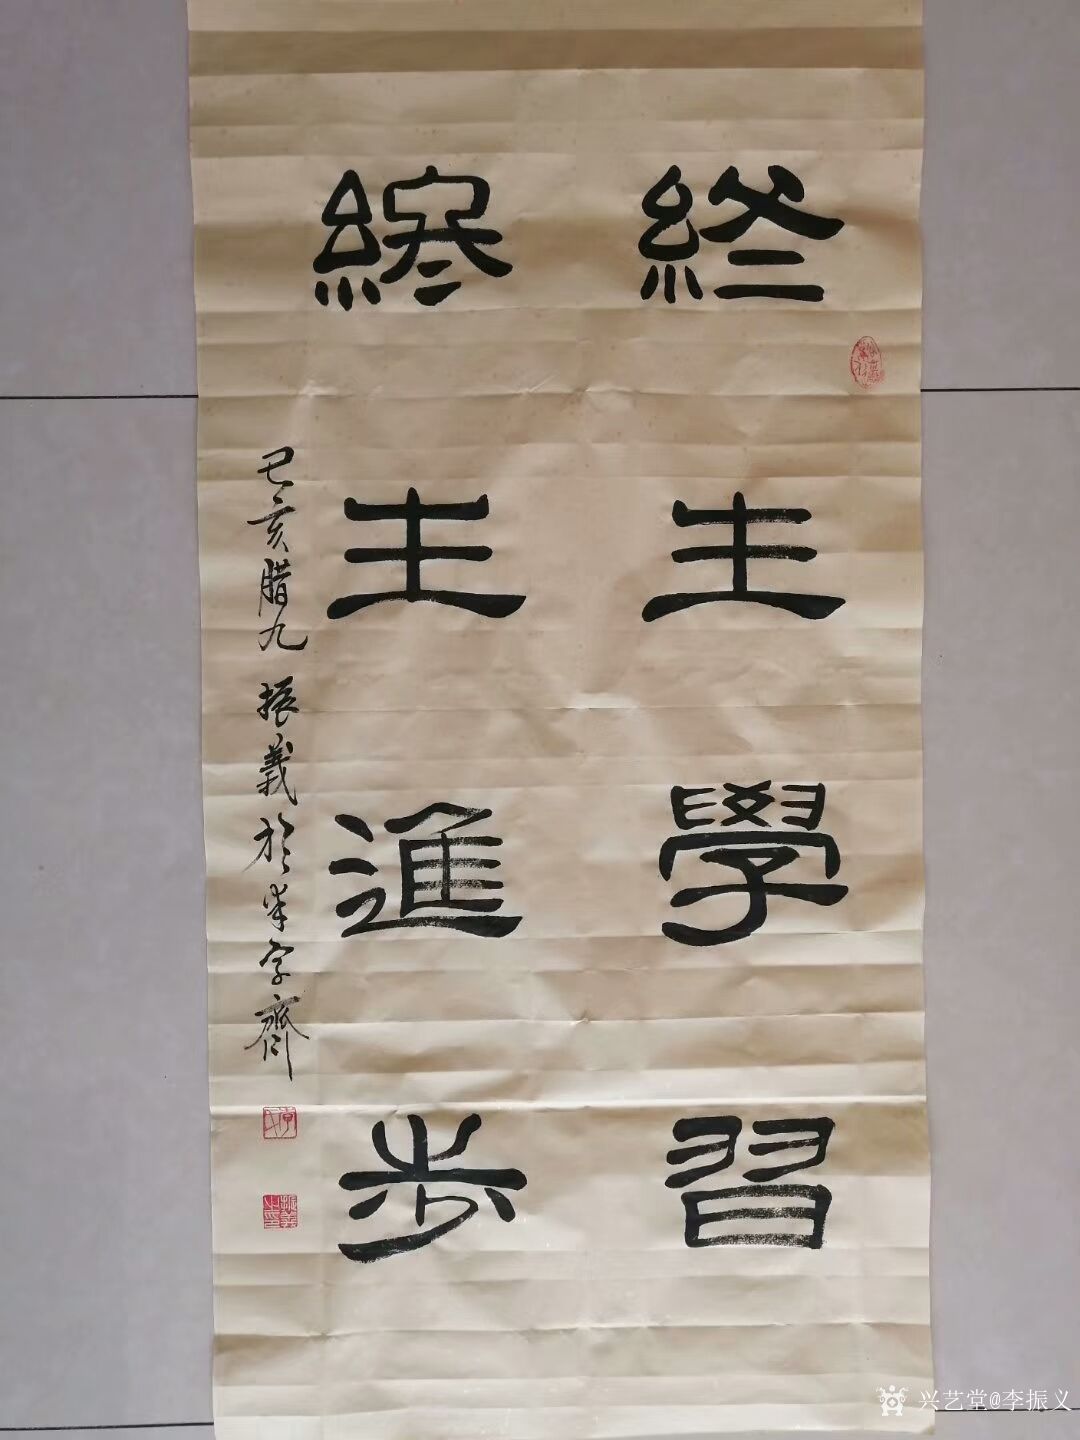 終生學習
終生進步
己亥腊九 振義於半字齋
振義之印
兴艺堂@李振义